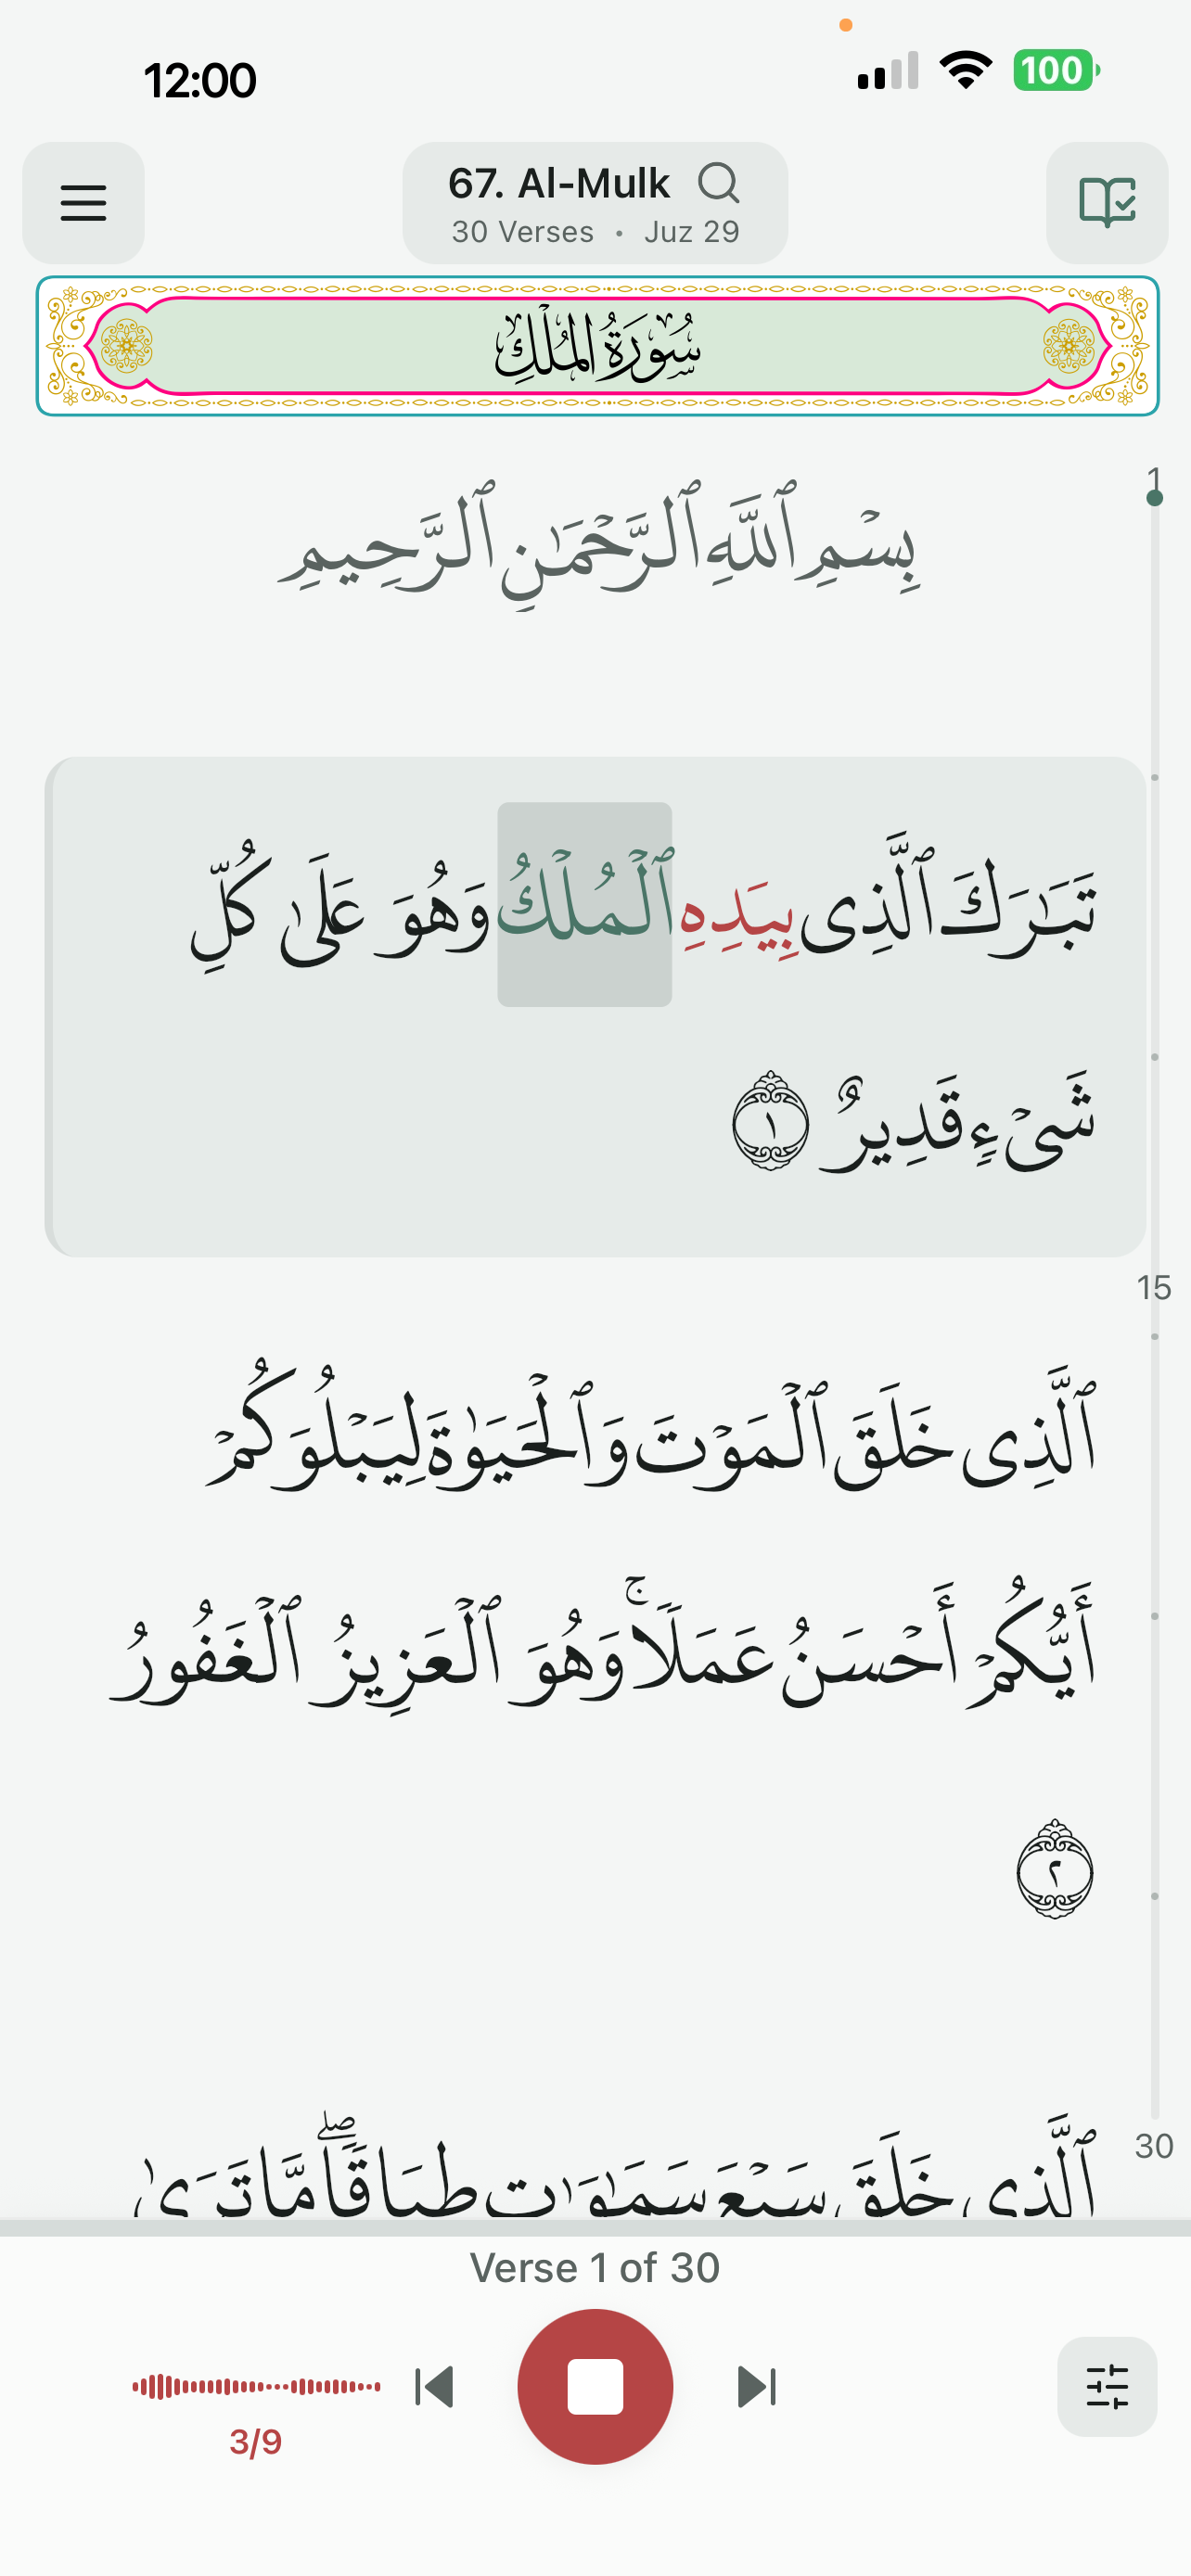 12:00
100
67. Al-Mulk
30 Verses • Juz 29
سُورَةُ المُلْكِ
1
بِسْمِ ٱللَّهِ ٱلرَّحْمَٰنِ ٱلرَّحِيمِ
تَبَٰرَكَ ٱلَّذِى بِيَدِهِ ٱلْمُلْكُ وَهُوَ عَلَىٰ كُلِّ
شَىْءٍ قَدِيرٌ ١
15
ٱلَّذِى خَلَقَ ٱلْمَوْتَ وَٱلْحَيَوٰةَ لِيَبْلُوَكُمْ
أَيُّكُمْ أَحْسَنُ عَمَلًا ۚ وَهُوَ ٱلْعَزِيزُ ٱلْغَفُورُ
٢
30
ٱلَّذِى خَلَقَ سَبْعَ سَمَٰوَٰتٍ طِبَاقًا ۖ مَّا تَرَىٰ
Verse 1 of 30
3/9